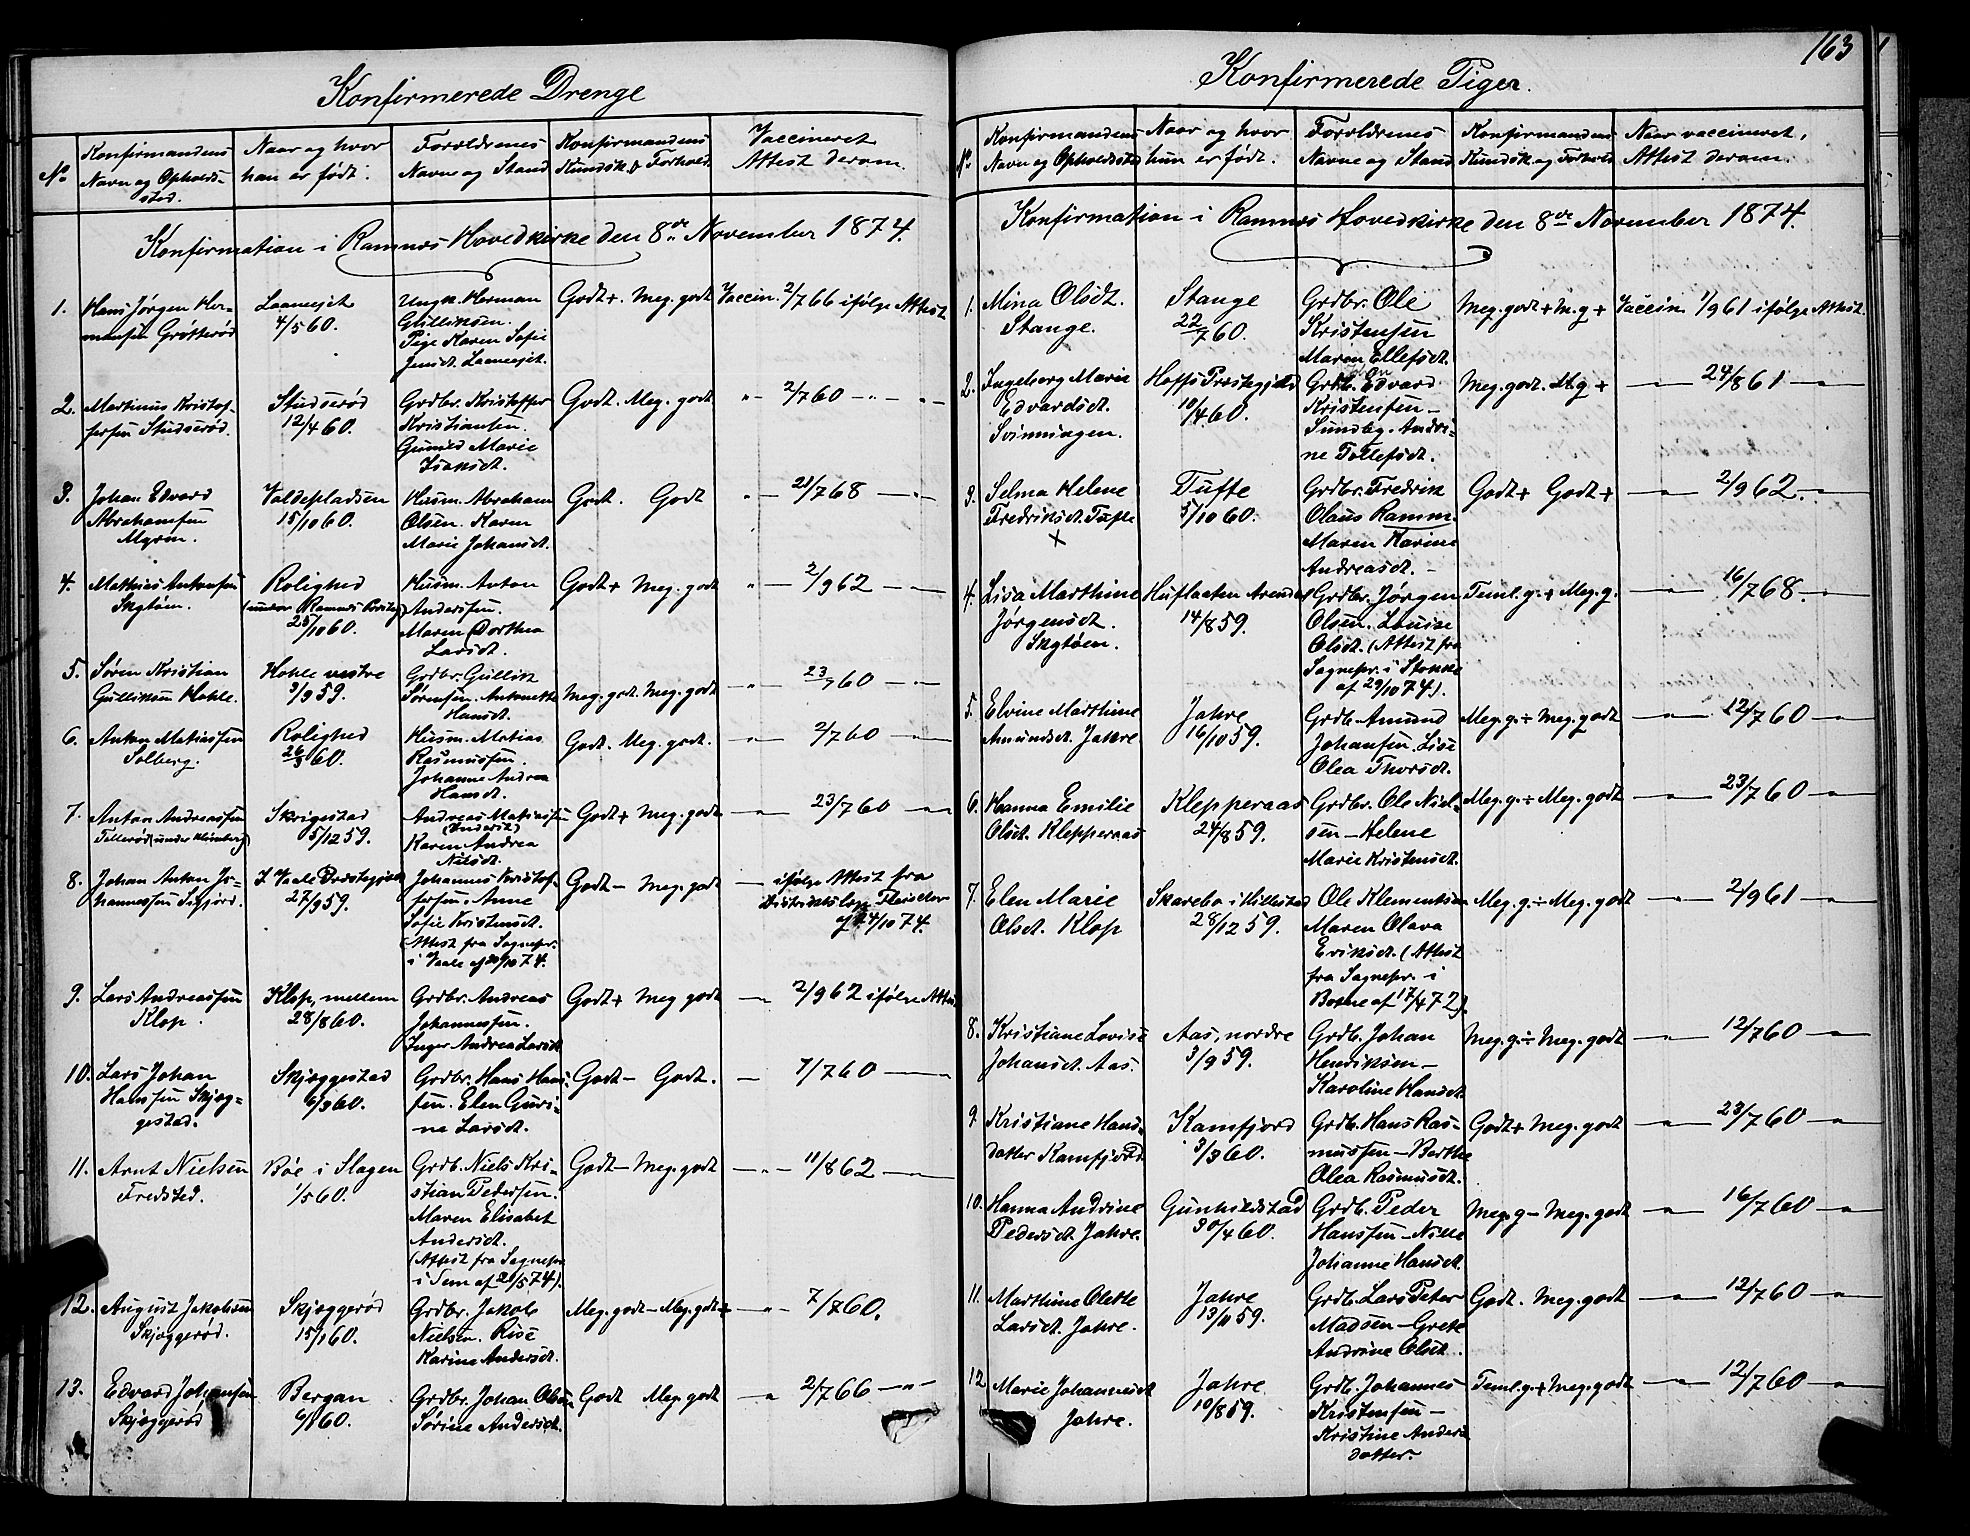 Konfirmerede Drenge
No
Konfirmandens
Navn og Opholds-
sted.
Naar og hvor
han er født.
Forældrenes
Navne og Stand
Konfirmandens
Kundsk. & Forhold
Vaccineret
Attest derom.
Konfirmation i Ramnes Hovedkirke den 8de November 1874.
1. Hans Jørgen Her-
mansen Grøtterød
Laanejet
4/5 60.
Ungk. Herman
Gulliksen.
Pige Karen Sofie
Jensdt. Laanejet.
Godt+. Meg. godt
Vaccin. 2/7 66 ifølge Attest
2. Martinus Kristof-
fersen Studserød.
Studserød
12/4 60.
Grdbr. Kristoffer
Kristiansen.
Gunild Marie
Isaksdt.
Godt. Meg. godt
" — 2/7 60 — " —
3. Johan Edvard
Abrahamsen
Myren.
Valdepladsen
15/10 60.
Husm. Abraham
Olsen. Karen
Marie Johansdt.
Godt. Godt
" — 21/7 68 — " —
4. Mathias Antonsen
Skgtøm.
Rolighed
(under Ramnes Præsteg.)
25/10 60.
Husm. Anton
Anderssen.
Maren Dorthea
Larsdt.
Godt+ Meg. godt
" — 2/9 62 — " —
5. Søren Kristian
Gulliksen Hohle.
Hohle vestre
3/9 59.
Grdbr. Gullik
Sørensen. Antonette
Hansdt.
Meg. godt. Meg. godt
— " — 23/7 60 — " —
6. Anton Matiassen
Solberg.
Rolighed
26/3 60.
Husm. Matias
Rasmussen.
Johanne Andrea
Hansdt.
Godt. Meg. godt.
— " — 2/7 60 — " —
7. Anton Andreassen
Tellerød (under Kleinberg)
Skrigestad
5/12 59.
Andreas Matiassen
(Inderst)
Karen Andrea
Nilsdt.
Godt+ Meg. godt
— " — 23/7 60 — " —
8. Johan Anton Jo-
hannessen Sigjord.
I Vaale Præstegjeld
27/9 59.
Johannes Kristof-
fersen. Anne
Sofie Kristensdt.
(Attest fra Sognepr.
i Vaale af 20/10 74.
Godt— Meg. godt
— ifølge Attest fra
Distriktslæge
af 24/10 74.
9. Lars Andreassen
Klop.
Klop, mellem
28/8 60.
Grdbr. Andreas
Johannessen.
Inger Andrea Larsdt
Godt+ Meg godt
— " — 2/9 62 ifølge Attest
10. Lars Johan
Hanssen Skjæg-
gestad.
Skjæggestad
6/3 60.
Grdbr. Hans Hans-
sen. Elen Guri-
ne Larsdt.
Godt— Godt.
— 7/7 60 —
11. Arnt Nielsen
Fredsted.
Bøe i Slagen
1/5 60.
Grdb. Niels Kri-
stian Pedersen.
Maren Elisabet
Andersdt.
(Attest fra Sognepr.
i Sem af 21/5 74).
Godt— Meg. godt
— " — 11/8 62 — " —
12. August Jakobsen
Skjæggerød.
Skjæggerød
15/1 60.
Grdbr. Jakob
Nielsen. Rise
Karine Andersdt.
Meg. godt— Meg. godt+
— " — 7/7 60.
13. Edvard Johansen
Skjæggerød
Bergan
6/1 60.
Grdbr. Johan Olsen
Sørine Andersdt.
Godt Meg. godt
— " 2/7 66 — " —
163
Konfirmerede Piger.
No.
Konfirmandens
Navn og Opholdssted
Naar og hvor
hun er født.
Forældrenes
Navne og Stand
Konfirmandens
Kundsk. og Forhold
Naar vaccineret,
Attest derom.
Konfirmation i Ramnes Hovedkirke den 8de November 1874.
1. Mina Olsdt.
Stange.
Stange
22/7 60.
Grdbr. Ole
Kristensen
Maren Ellefsdt.
Meg. godt+ M. g+
Vaccin 1/9 61 ifølge Attest.
2. Ingeborg Marie
Edvardsdt.
Svinningen.
Hoffs Præstegjeld
10/4 60.
Grdb. Edvard
Kristensen—
Sundby. Andri-
ne Tollefsdt.
Meg. godt. M. g +
— " — 24/8 61 — "
3. Selma Helene
Fredriksdt. Tufte
x
Tufte
5/10 60.
Grdbr. Fredrik
Olaus Ramm.
Maren Karine
Andreasdt.—
Godt+ Godt+
— " — 2/9 62. — " —
4. Lisa Marthine
Jørgensdt.
Skgtøm.
Huflaaten Arendal
14/8 59.
Grdbr. Jørgen
Olsen. Louise
Olsdt. (Attest fra
Sognepr. i Stokke
af 29/10 74).
Teml. g.+ Meg. g.
— " — 16/7 68. — "
5. Elvine Marthine
Amundsdt. Jahre
Jahre
16/10 59.
Grdb. Amund
Johansen. Lise
Olea Thorsdt.
Meg. g. ÷ Meg. godt
— " — 12/7 60 — " —
6. Hanna Emilie
Olsdt. Klepperaas
Klepperaas
24/8 59.
Grdbr. Ole Niel-
sen — Helene
Marie Kristensdt.
Meg. g. ÷ Meg. godt
— " — 23/7 60 — " —
7. Elen Marie
Olsdt. Klop
Skarebo i Hillestad
28/12 59.
Ole Klementsen
Maren Olava
Eriksdt. (Attest
fra Sognepr. i
Botne af 17/4 72).
Meg. g. ÷ Meg. godt
— " — 2/9 61 — " —
8. Kristiane Lovise
Johansdt. Aas.
Aas, nordre
3/9 59.
Grdb. Johan
Henriksen —
Karoline Hansdt
Meg. g. ÷ Meg. godt
— " — 12/7 60 — " —
9. Kristiane Hans-
datter Kamfjord
Kamfjord
3/3 60.
Grdb. Hans Ras-
mussen — Berthe
Olea Rasmusdt.
Godt+ Meg. godt
— " — 23/7 60 — " —
10. Hanna Andrine
Pedersdt Jahre
Gunhildstad
30/4 60.
Grdb. Peder
Hanssen — Nille
Johanne Hansdt.
Meg. g— Meg. godt
— " — 16/7 60 — " —
11. Marthine Olette
Larsdt. Jahre.
Jahre
13/10 59.
Grdb. Lars Peter
Madsen — Grete
Andrine Olsdt.
Godt. Meg. godt
— " — 12/7 60 — " —
12 Marie Johannesdt
Jahre.
Jahre
10/8 59.
Grdb. Johannes
Kristensen —
Kristine Anders
datter.
Teml. g.+ Meg. godt
— " — 12/7 60 — " —